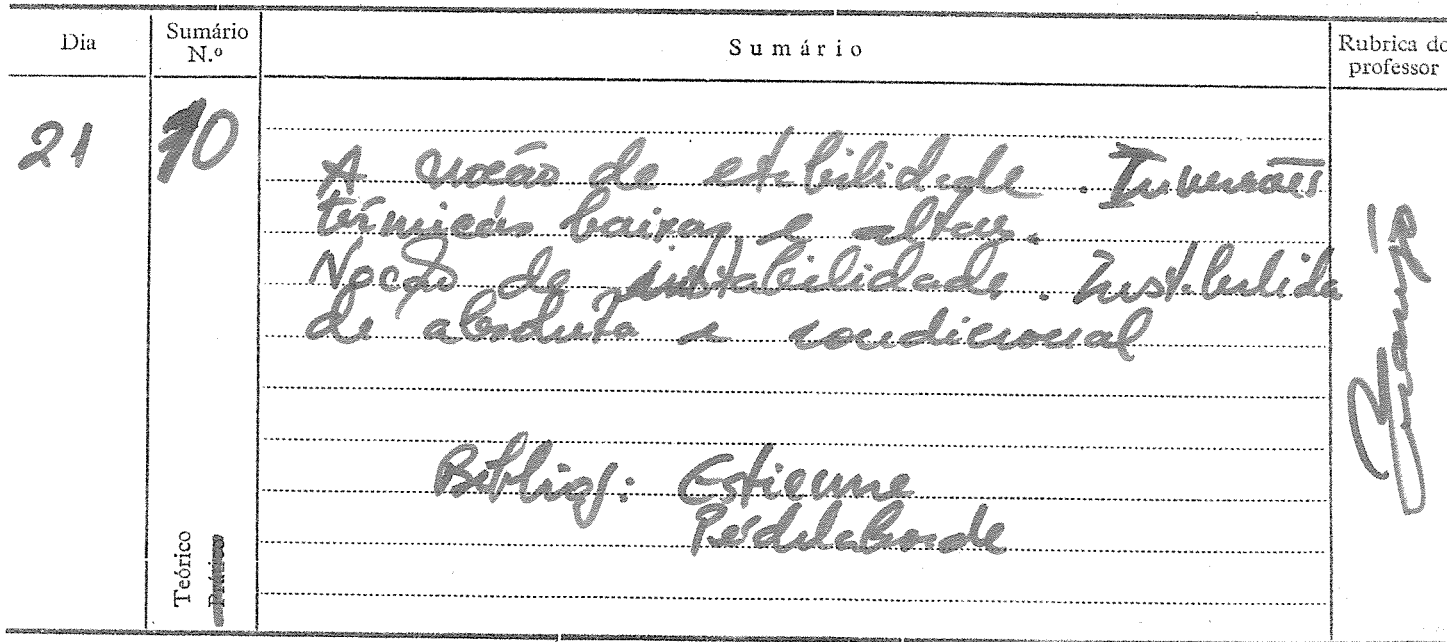 Dia
Sumário N.º
Sumário
Rubrica do professor
21
10
A noção de estabilidade. Inversões
térmicas baixas e altas.
Noção de instabilidade. Instabilida
de absoluta e condicional
Bibliog: Estienne
Pédelaborde
Teórico
Prático